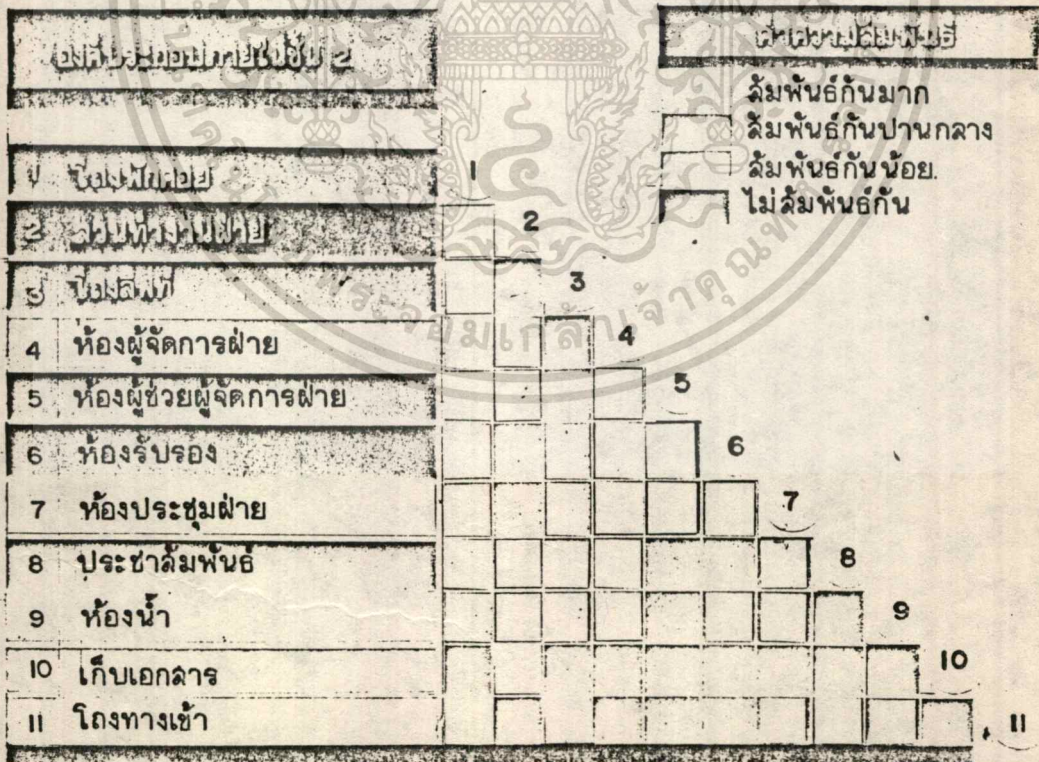 องค์ประกอบภายในชั้น 2
ค่าความสัมพันธ์
สัมพันธ์กันมาก
สัมพันธ์กันปานกลาง
สัมพันธ์กันน้อย.
ไม่สัมพันธ์กัน
1
2 ส่วนทำงานฝ่าย
3 ห้องลิฟท์
4 ห้องผู้จัดการฝ่าย
5 ห้องผู้ช่วยผู้จัดการฝ่าย
6 ห้องรับรอง
7 ห้องประชุมฝ่าย
8 ประชาสัมพันธ์
9 ห้องน้ำ
10 เก็บเอกสาร
11 โถงทางเข้า
1
2
3
4
5
6
7
8
9
10
11
พระจอมเกล้าเจ้าคุณทหาร